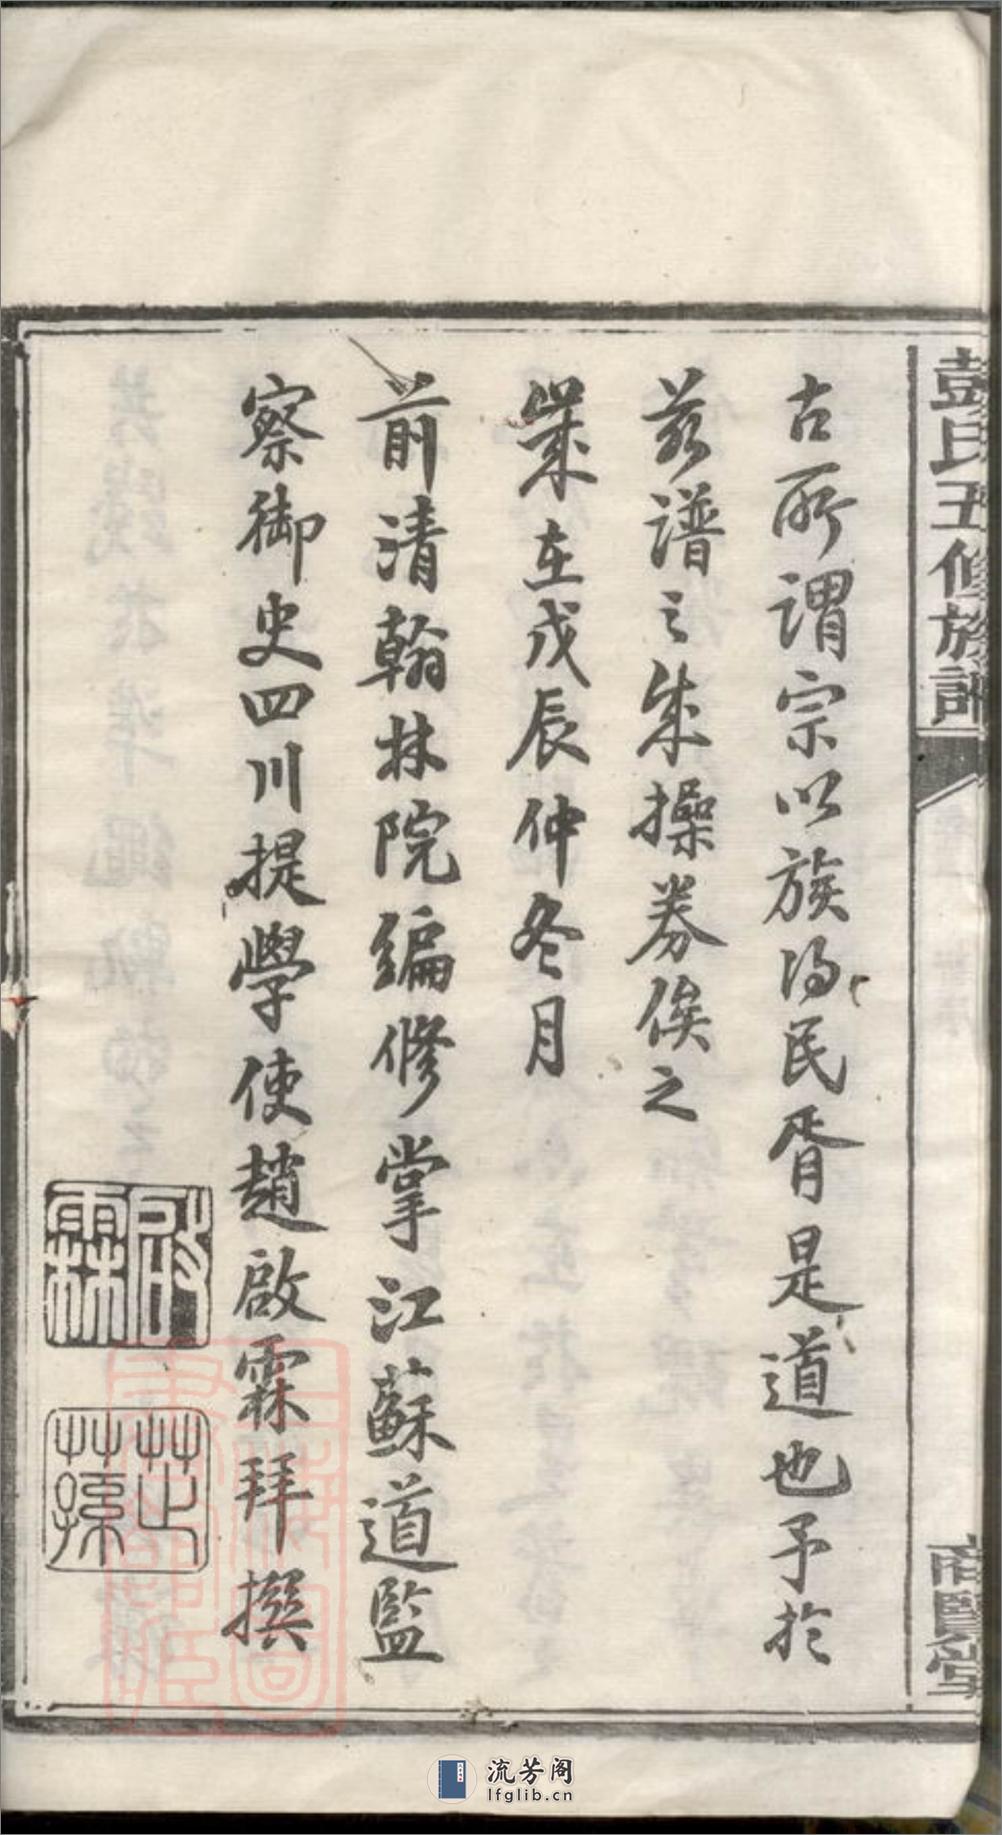 彭氏五修族譜
商賢堂
古所謂宗以族得民胥是道也予於
茲譜之成操券俟之
歲在戊辰仲冬月
前清翰林院編修掌江蘇道監
察御史四川提學使趙啟霖拜撰
啟霖
芷蓀
流芳阁
lfglib.cn